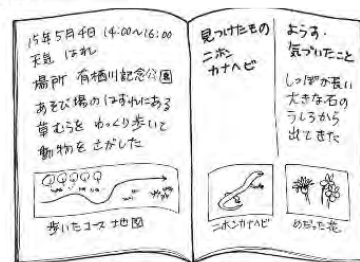 15年5月4日 14:00~16:00
天気 はれ
場所 有栖川記念公園
あそび場のはずれにある
草むらを ゆっくり歩いて
動物を さがした
歩いたコース 地図
見つけたもの
ニホン
カナヘビ
ようす・
気づいたこと
しっぽが長い
大きな石の
うしろから
出てきた
ニホンカナヘビ
めだった花